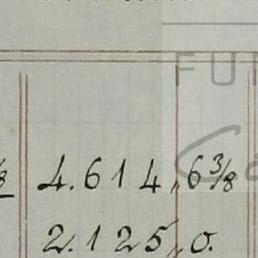 FU
⅛ 4.614,,6⅜
2.125,,0.